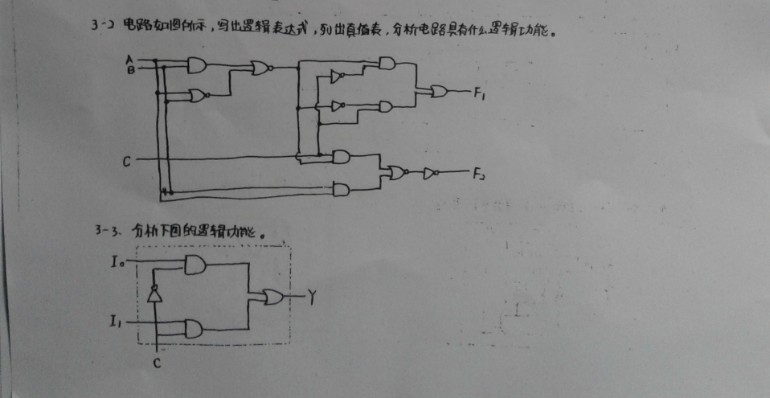 3-2 电路如图所示，写出逻辑表达式，列出真值表，分析电路具有什么逻辑功能。
A
B
F₁
C
F₂
3-3. 分析下图的逻辑功能。
I₀
Y
I₁
C